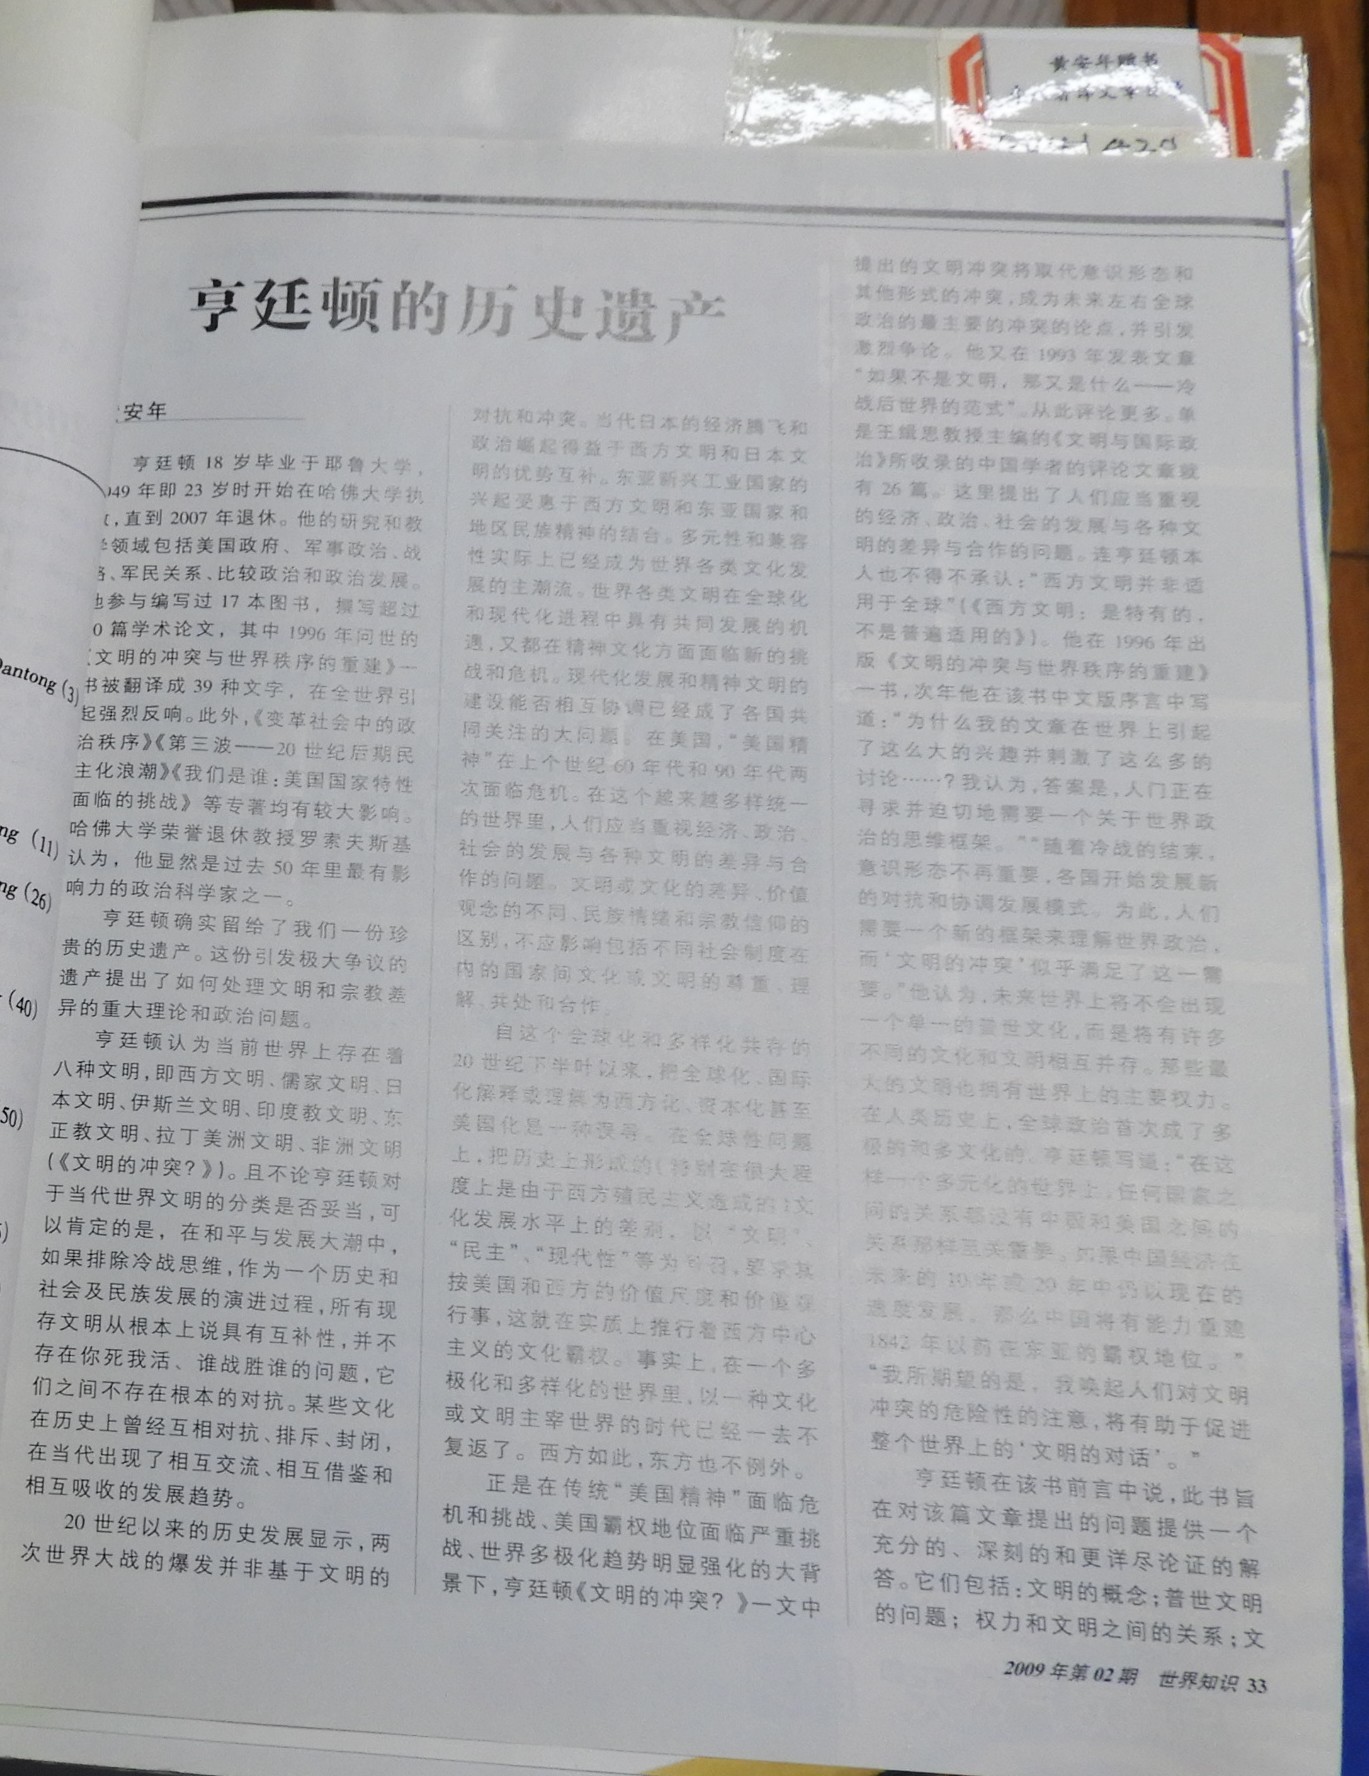 黄安年赠书
亨廷顿的历史遗产
安年
亨廷顿 18 岁毕业于耶鲁大学，
949 年即 23 岁时开始在哈佛大学执
，直到 2007 年退休。他的研究和教
学领域包括美国政府、军事政治、战
略、军民关系、比较政治和政治发展。
他参与编写过 17 本图书，撰写超过
0 篇学术论文，其中 1996 年问世的
《文明的冲突与世界秩序的重建》一
书被翻译成 39 种文字，在全世界引
起强烈反响。此外，《变革社会中的政
治秩序》《第三波——20 世纪后期民
主化浪潮》《我们是谁：美国国家特性
面临的挑战》等专著均有较大影响。
哈佛大学荣誉退休教授罗索夫斯基
认为，他显然是过去 50 年里最有影
响力的政治科学家之一。
亨廷顿确实留给了我们一份珍
贵的历史遗产。这份引发极大争议的
遗产提出了如何处理文明和宗教差
异的重大理论和政治问题。
亨廷顿认为当前世界上存在着
八种文明，即西方文明、儒家文明、日
本文明、伊斯兰文明、印度教文明、东
正教文明、拉丁美洲文明、非洲文明
(《文明的冲突？》)。且不论亨廷顿对
于当代世界文明的分类是否妥当，可
以肯定的是，在和平与发展大潮中，
如果排除冷战思维，作为一个历史和
社会及民族发展的演进过程，所有现
存文明从根本上说具有互补性，并不
存在你死我活、谁战胜谁的问题，它
们之间不存在根本的对抗。某些文化
在历史上曾经互相对抗、排斥、封闭，
在当代出现了相互交流、相互借鉴和
相互吸收的发展趋势。
20 世纪以来的历史发展显示，两
次世界大战的爆发并非基于文明的
对抗和冲突。当代日本的经济腾飞和
政治崛起得益于西方文明和日本文
明的优势互补。东亚新兴工业国家的
兴起受惠于西方文明和东亚国家和
地区民族精神的结合。多元性和兼容
性实际上已经成为世界各类文化发
展的主潮流。世界各类文明在全球化
和现代化进程中具有共同发展的机
遇，又都在精神文化方面面临新的挑
战和危机。现代化发展和精神文明的
建设能否相互协调已经成了各国共
同关注的大问题。在美国，“美国精
神”在上个世纪 60 年代和 90 年代两
次面临危机。在这个越来越多样统一
的世界里，人们应当重视经济、政治、
社会的发展与各种文明的差异与合
作的问题。文明或文化的差异、价值
观念的不同、民族情绪和宗教信仰的
区别，不应影响包括不同社会制度在
内的国家间文化或文明的尊重、理
解、共处和合作。
自这个全球化和多样化共存的
20 世纪下半叶以来，把全球化、国际
化解释或理解为西方化、资本化甚至
美国化是一种误导。在全球性问题
上，把历史上形成的(特别在很大程
度上是由于西方殖民主义造成的)文
化发展水平上的差别，以“文明”、
“民主”、“现代性”等为号召，要求其
按美国和西方的价值尺度和价值观
行事，这就在实质上推行着西方中心
主义的文化霸权。事实上，在一个多
极化和多样化的世界里，以一种文化
或文明主宰世界的时代已经一去不
复返了。西方如此，东方也不例外。
正是在传统“美国精神”面临危
机和挑战、美国霸权地位面临严重挑
战、世界多极化趋势明显强化的大背
景下，亨廷顿《文明的冲突？》一文中
提出的文明冲突将取代意识形态和
其他形式的冲突，成为未来左右全球
政治的最主要的冲突的论点，并引发
激烈争论。他又在 1993 年发表文章
“如果不是文明，那又是什么——冷
战后世界的范式”。从此评论更多。单
是王缉思教授主编的《文明与国际政
治》所收录的中国学者的评论文章就
有 26 篇。这里提出了人们应当重视
的经济、政治、社会的发展与各种文
明的差异与合作的问题。连亨廷顿本
人也不得不承认：“西方文明并非适
用于全球”(《西方文明：是特有的，
不是普遍适用的》)。他在 1996 年出
版《文明的冲突与世界秩序的重建》
一书，次年他在该书中文版序言中写
道：“为什么我的文章在世界上引起
了这么大的兴趣并刺激了这么多的
讨论……？我认为，答案是，人们正在
寻求并迫切地需要一个关于世界政
治的思维框架。”“随着冷战的结束，
意识形态不再重要，各国开始发展新
的对抗和协调发展模式。为此，人们
需要一个新的框架来理解世界政治，
而‘文明的冲突’似乎满足了这一需
要。”他认为，未来世界上将不会出现
一个单一的普世文化，而是将有许多
不同的文化和文明相互并存。那些最
大的文明也拥有世界上的主要权力。
在人类历史上，全球政治首次成了多
极的和多文化的。亨廷顿写道：“在这
样一个多元化的世界上，任何国家之
间的关系都没有中国和美国之间的
关系那样至关重要。如果中国经济在
未来的 10 年或 20 年中仍以现在的
速度发展，那么中国将有能力重建
1842 年以前在东亚的霸权地位。”
“我所期望的是，我唤起人们对文明
冲突的危险性的注意，将有助于促进
整个世界上的‘文明的对话’。”
亨廷顿在该书前言中说，此书旨
在对该篇文章提出的问题提供一个
充分的、深刻的和更详尽论证的解
答。它们包括：文明的概念；普世文明
的问题；权力和文明之间的关系；文
2009 年第 02 期 世界知识 33
antong (3)
ng (11)
ng (26)
(40)
50)